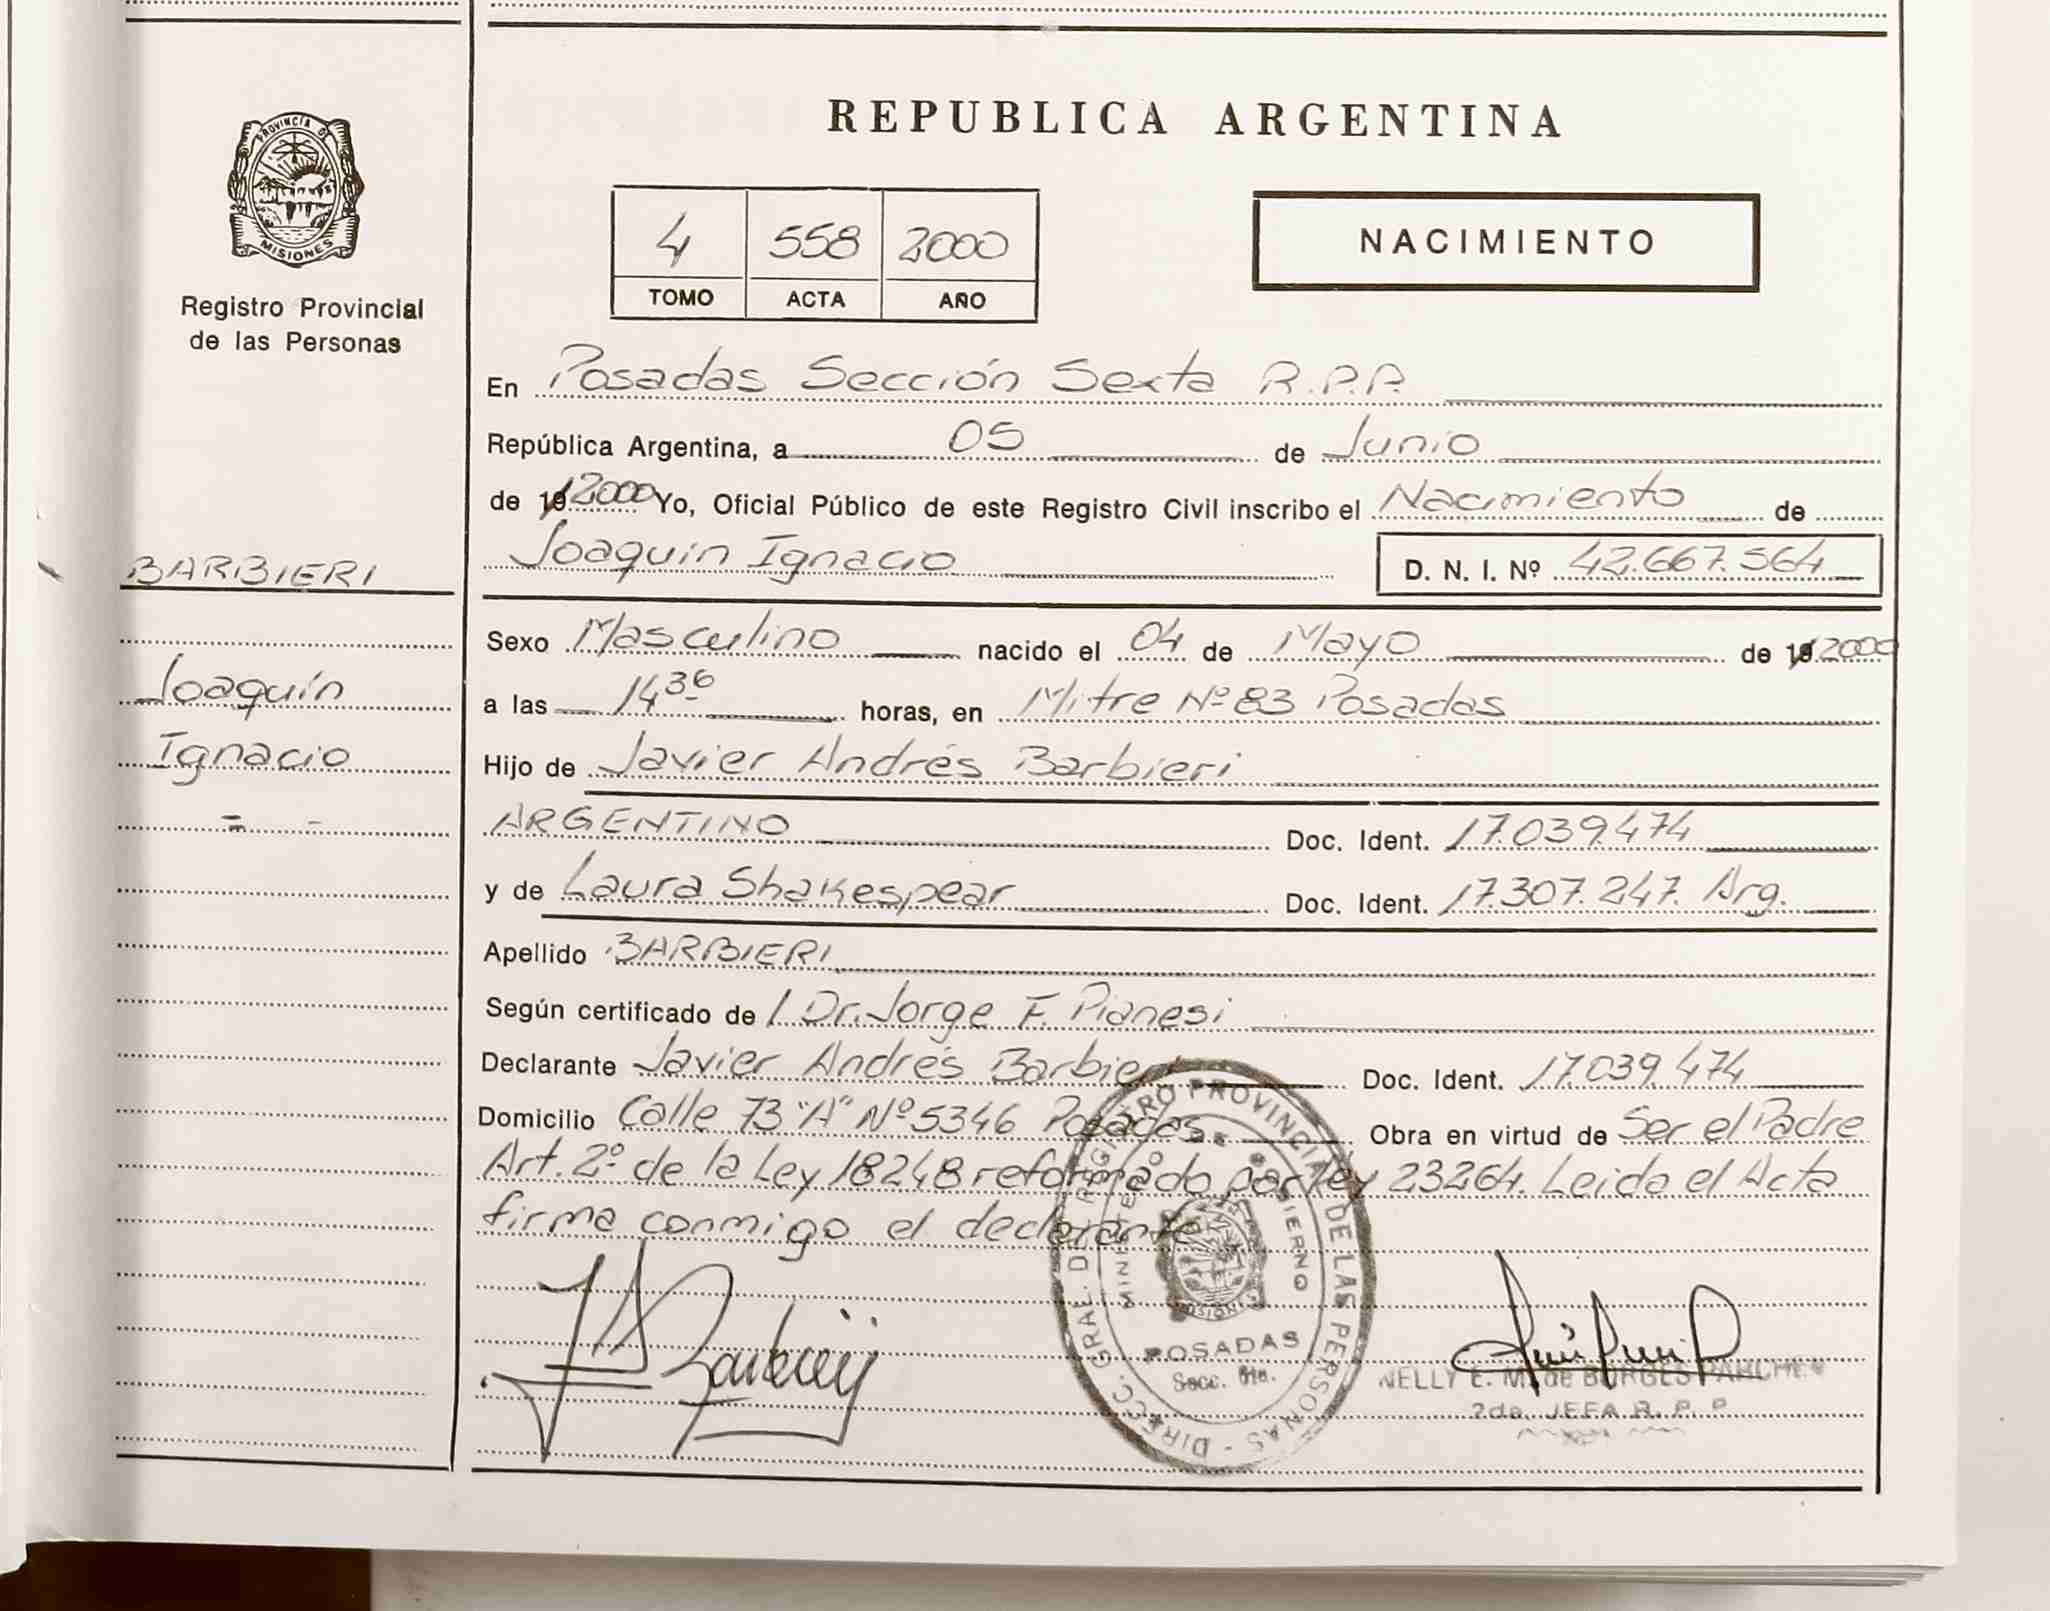 PROVINCIA DE
MISIONES
Registro Provincial
de las Personas
BARBIERI
Joaquín
Ignacio
REPUBLICA ARGENTINA
4 558 2000
TOMO ACTA AÑO
NACIMIENTO
En Posadas Sección Sexta R.P.P.
República Argentina, a 05 de Junio
de 19 2000 Yo, Oficial Público de este Registro Civil inscribo el Nacimiento de
Joaquín Ignacio D. N. I. Nº 42.667.564
Sexo Masculino nacido el 04 de Mayo de 19 2000
a las 14 36 horas, en Mitre Nº 83 Posadas
Hijo de Javier Andrés Barbieri
ARGENTINO Doc. Ident. 17.039.474
y de Laura Shakespear Doc. Ident. 17.307.247. Arg.
Apellido BARBIERI
Según certificado de / Dr. Jorge F. Pianesi
Declarante Javier Andrés Barbieri Doc. Ident. 17.039.474
Domicilio Calle 73 "A" Nº 5346 Posadas Obra en virtud de Ser el Padre
Art. 2º de la Ley 18248 reformado por Ley 23264. Leida el Acta
firma conmigo el declarante
DIRECC. GRAL. DEL REGISTRO PROVINCIAL DE LAS PERSONAS -
MINISTERIO DE GOBIERNO
MISIONES
POSADAS
Secc. 6ta.
NELLY E. M. de BORGES PAHCHEN
2da. JEFA R. P. P